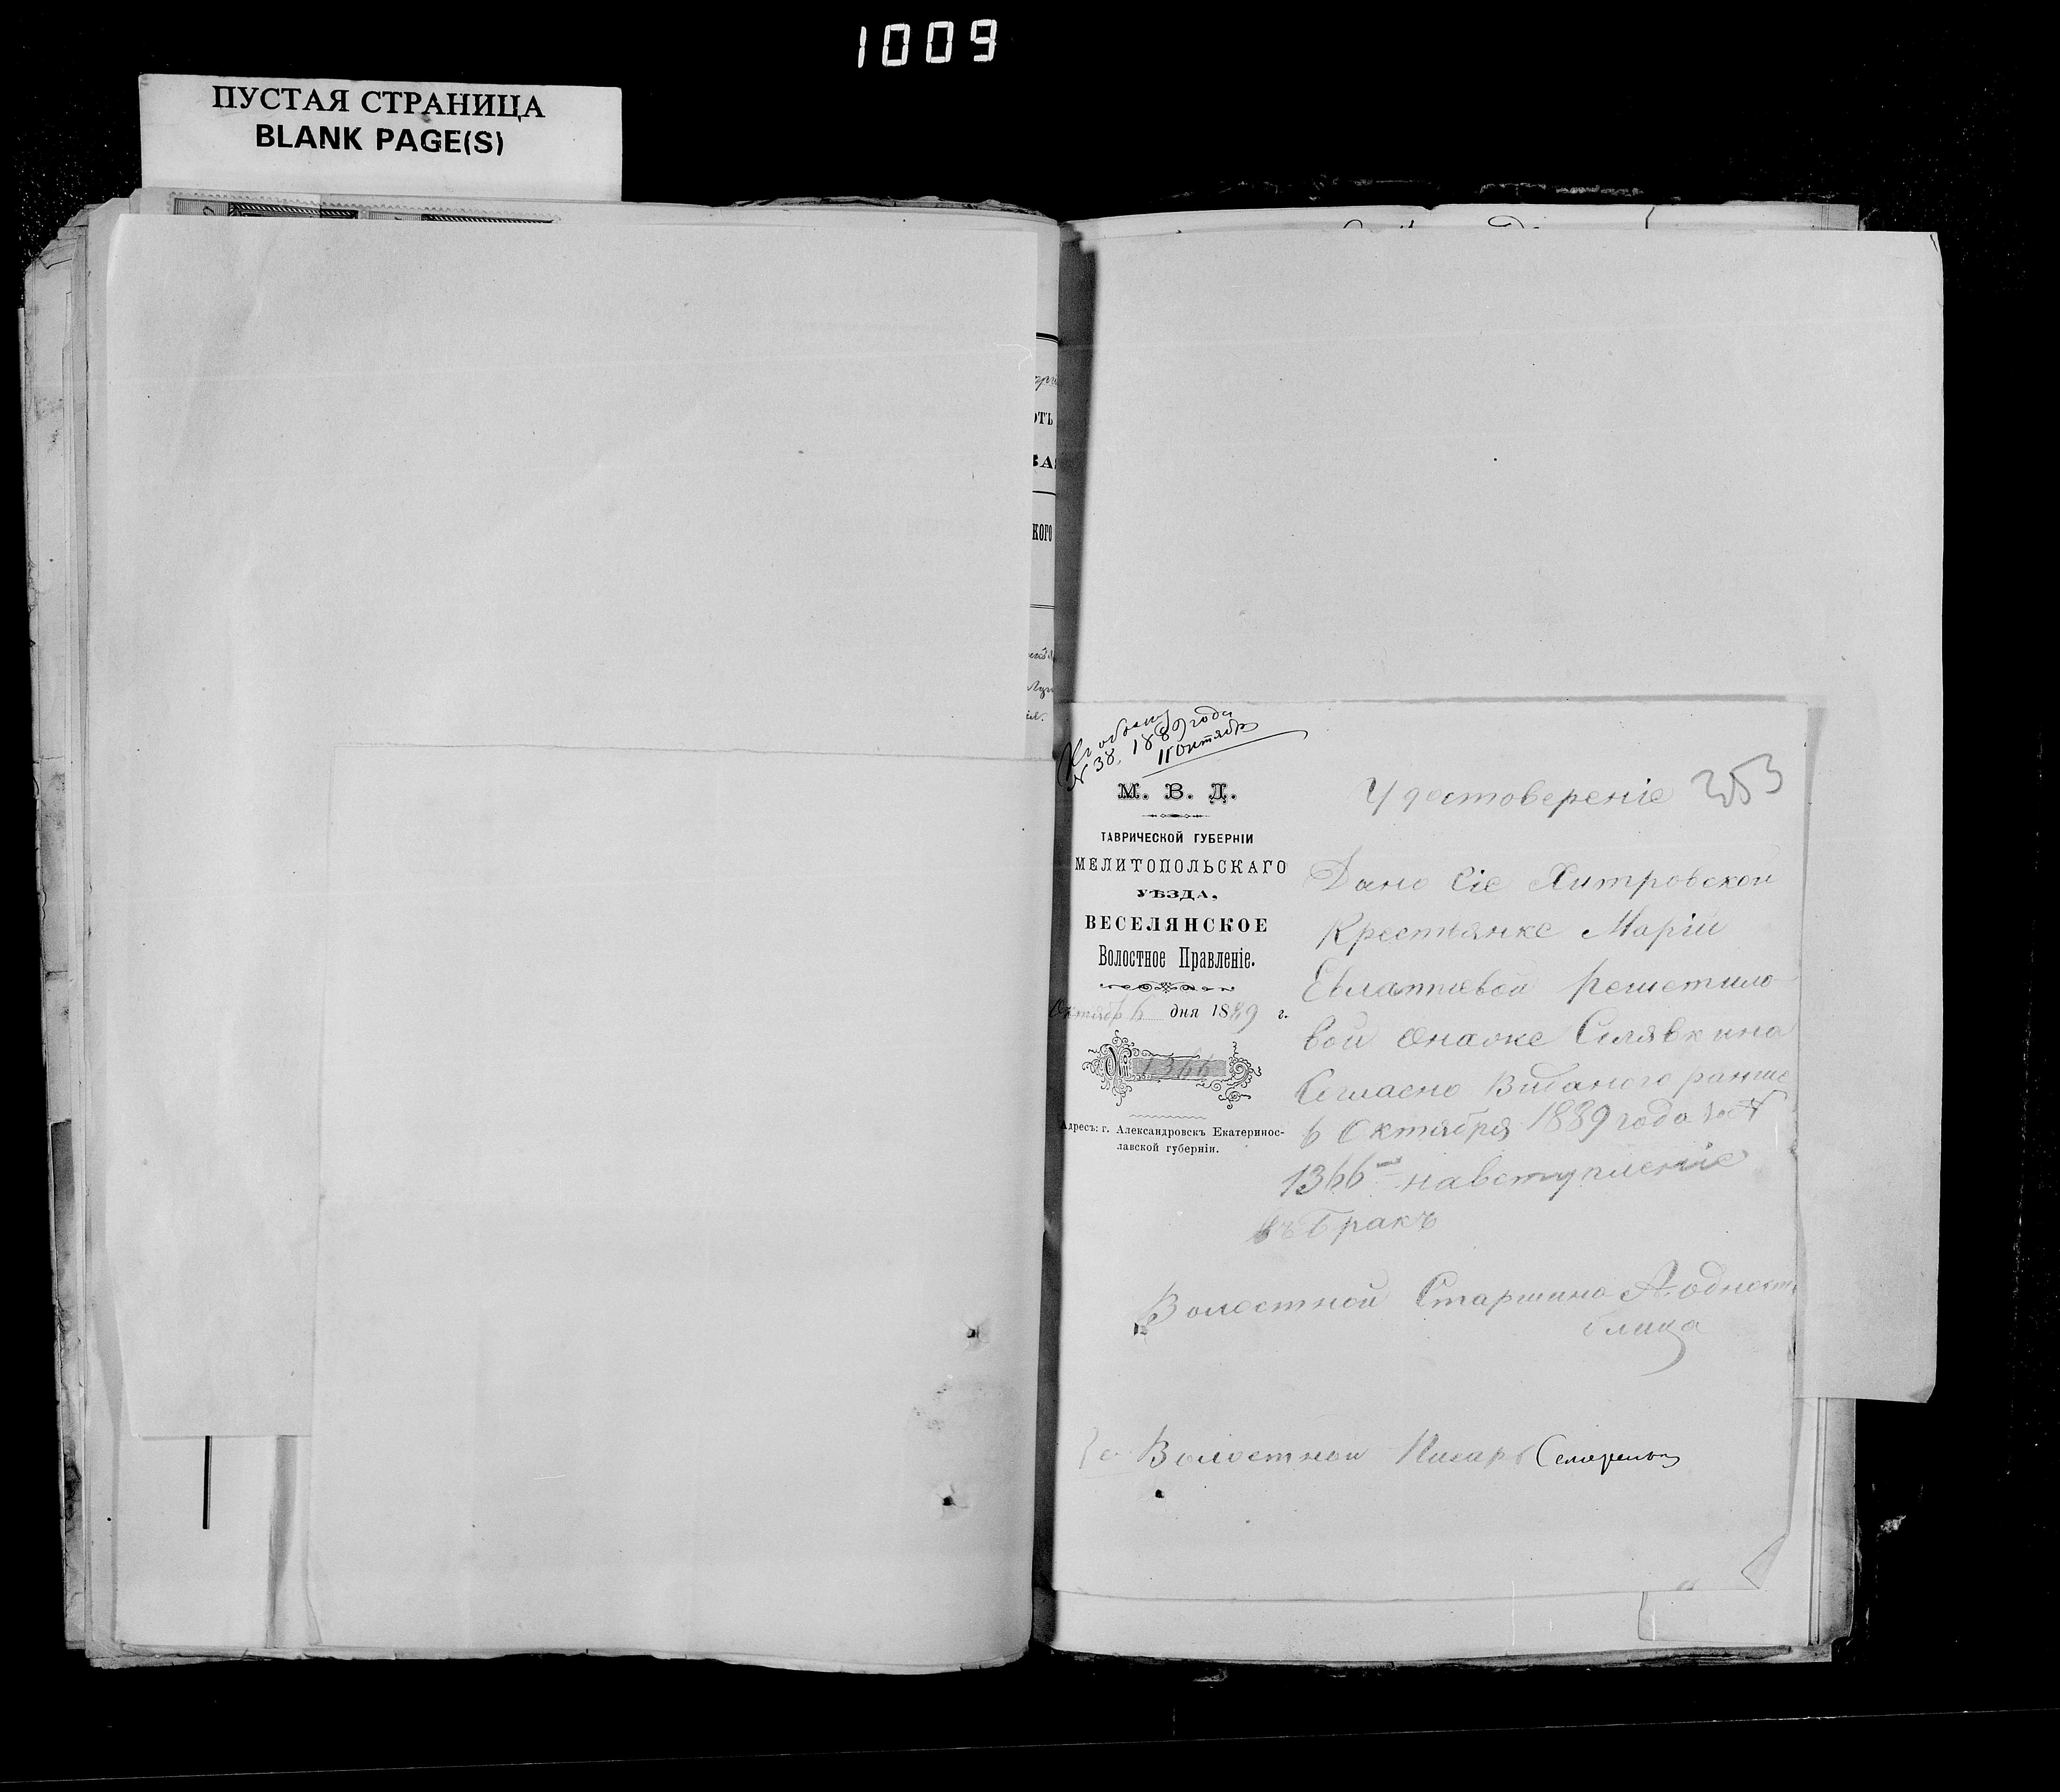 1009
ПУСТАЯ СТРАНИЦА
BLANK PAGE(S)
ОТЪ
КОГО
№ 38, 1889 года
11 Октября
М. В. Д.
ТАВРИЧЕСКОЙ ГУБЕРНІИ
МЕЛИТОПОЛЬСКАГО
УѢЗДА.
ВЕСЕЛЯНСКОЕ
Волостное Правленіе.
Октября 6 дня 1889 г.
№ 1366
Адресъ: г. Александровскъ Екатеринос-
лавской губерніи.
Удостовереніе 253
Дано Сіе Хитровской
Крестьянке Маріи
Евлампіевой Решетило
вой
Согласно Виданого ранше
6 Октября 1889 года за №
1366 на вступленіе
въ Бракъ
Волостной Старшина
Волостной Писарь